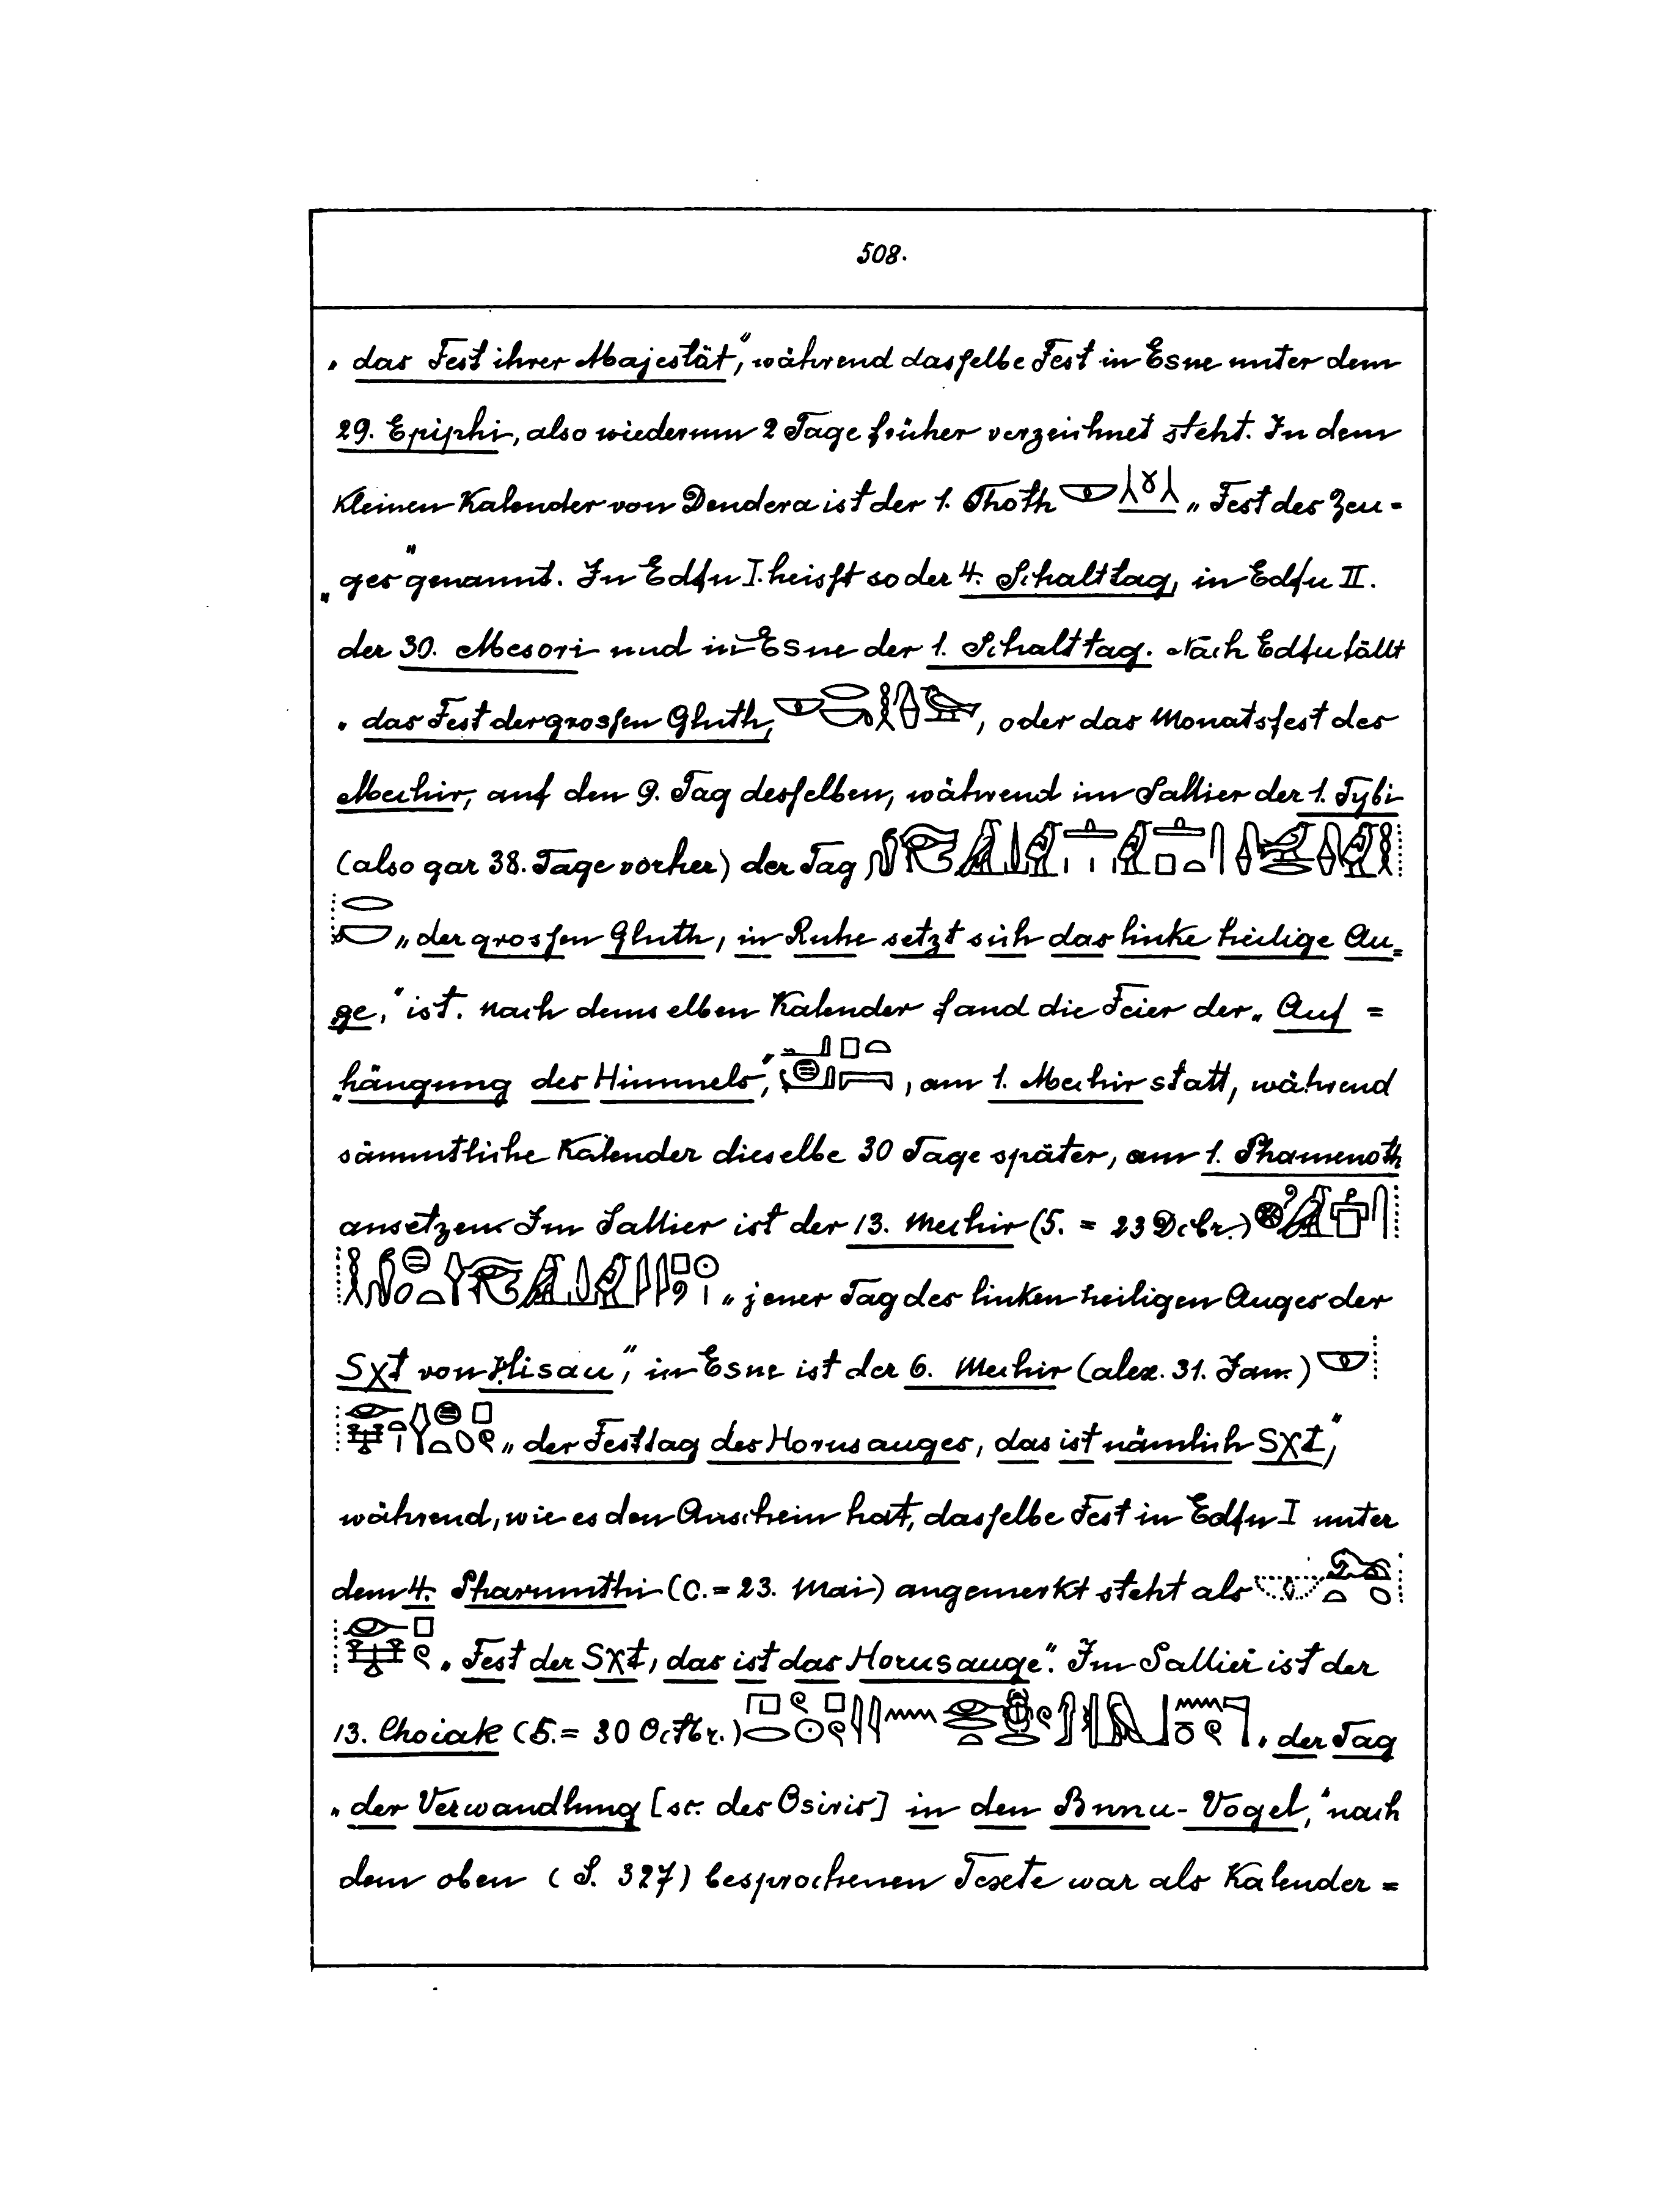 508.
„das Fest ihrer Majestät“, während dasselbe Fest in Esne unter dem
29. Epiphi, also wiederum 2 Tage früher verzeichnet steht. In dem
kleinen Kalender von Dendera ist der 1. Thoth „Fest des Zeu-
„ges“ genannt. In Edfu I. heisst so der 4. Schalttag, in Edfu II.
der 30. Mesori und in Esne der 1. Schalttag. Nach Edfu fällt
„das Fest der grossen Gluth, , oder das Monatsfest des
Mechir, auf den 9. Tag desselben, während im Sallier der 1. Tybi
(also gar 38. Tage vorher) der Tag
„der grossen Gluth, in Ruhe setzt sich das linke heilige Au=
ge,“ ist. Nach demselben Kalender fand die Feier der „Auf=
„hängung des Himmels“, , am 1. Mechir statt, während
sämmtliche Kalender dieselbe 30 Tage später, am 1. Phamenoth
ansetzen. Im Sallier ist der 13. Mechir (S. = 23 Dcbr.)
„jener Tag des linken heiligen Auges der
Sχt von Hisau“, in Esne ist der 6. Mechir (alex. 31. Jan.)
„der Festtag des Horusauges, das ist nämlich Sχt,“
während, wie es den Anschein hat, dasselbe Fest in Edfu I unter
dem 4. Pharmuthi (C. = 23. Mai) angemerkt steht als
„Fest der Sχt, das ist das Horusauge“. Im Sallier ist der
13. Choiak (S. = 30 Octbr.) „der Tag
„der Verwandlung [sc. des Osiris] in den Bnnu-Vogel,“ nach
dem oben (S. 327) besprochenen Texte war als Kalender=